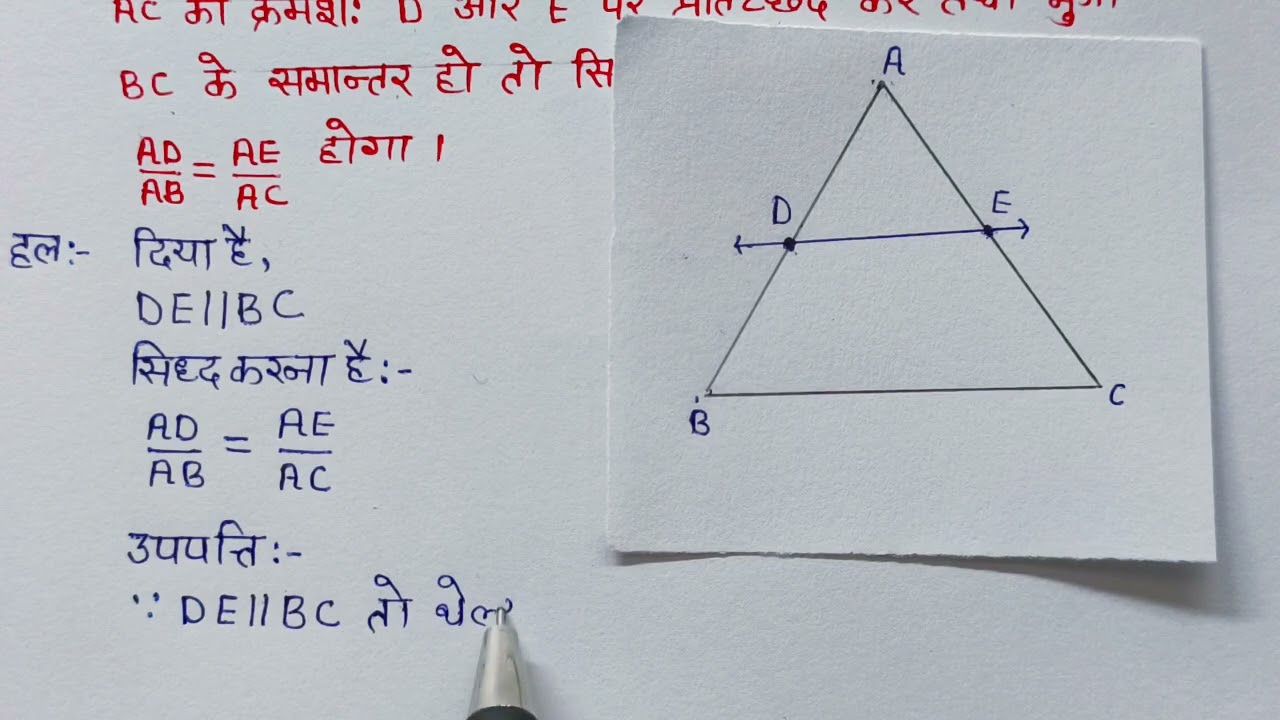 AC को क्रमशः D और E पर प्रतिच्छेद करे तथा भुजा
BC के समान्तर हो तो सि
AD/AB = AE/AC होगा ।
हल:- दिया है,
DE||BC
सिध्द करना है:-
AD/AB = AE/AC
उपपत्ति:-
∵ DE||BC तो थेल
A
D
E
B
C